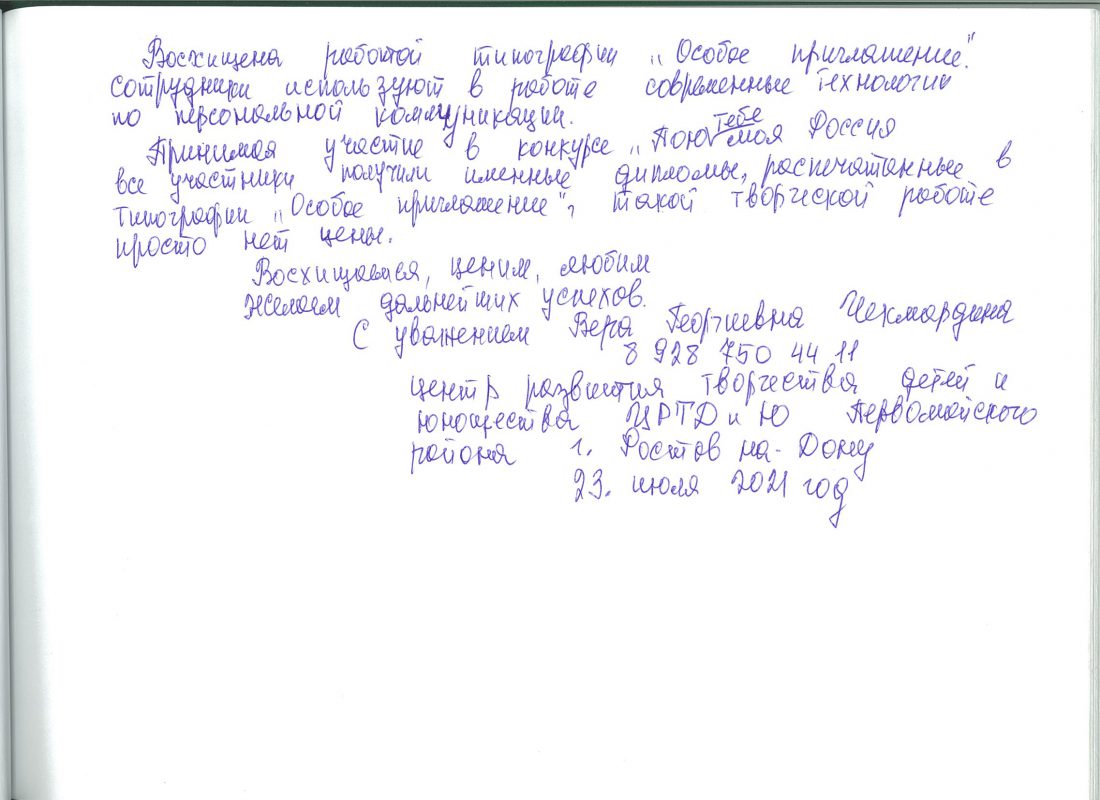 Восхищена работой типографии „Особое приглашение."
сотрудники используют в работе современные технологии
по персональной коммуникации.
Принимая участие в конкурсе „Пою тебе моя Россия
все участники получили именные дипломы, распечатанные в
типографии „Особое приглашение", такой творческой работе
просто нет цены.
Восхищаемся, ценим, любим
желаем дальнейших успехов.
С уважением Вера Георгиевна Чекмардина
8 928 750 44 11
центр развития творчества детей и
юношества ЦРТДиЮ Первомайского
района г. Ростов на-Дону
23. июля 2021 год